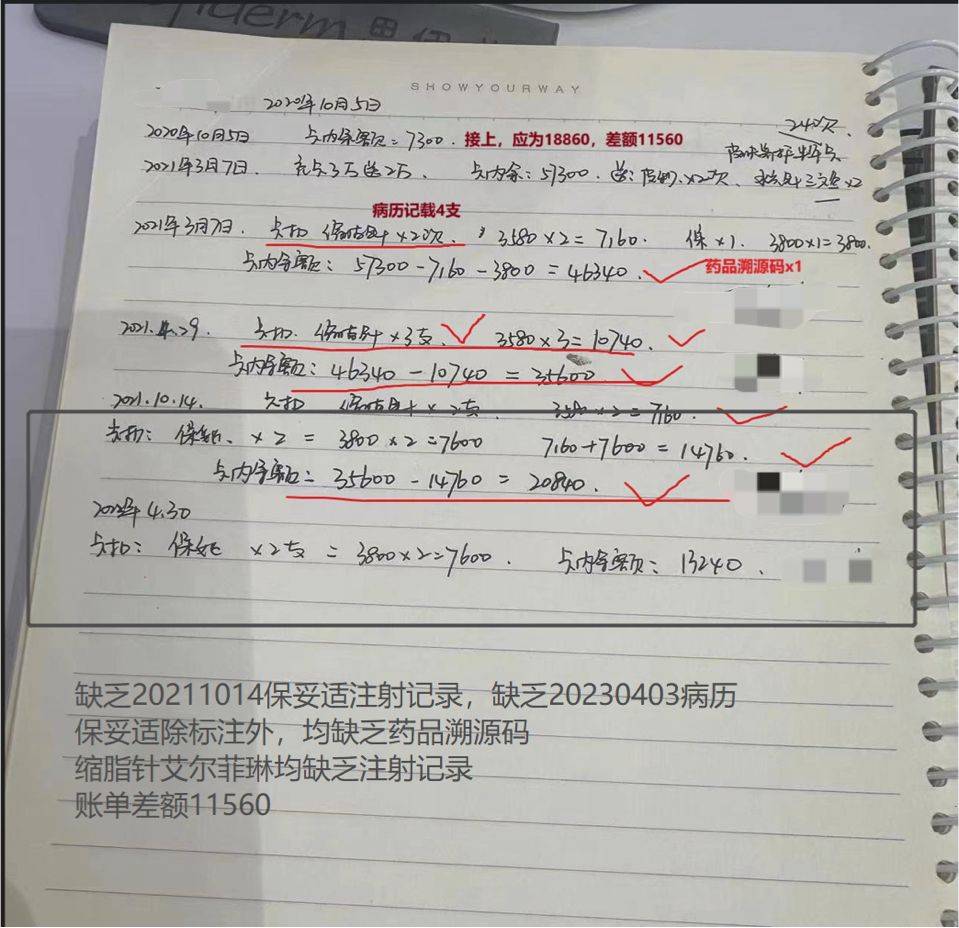 derm
SHOWYOURWAY
2020年10月5日
24次
2020年10月5日 卡内余额=7300. 接上，应为18860，差额11560
2021年3月7日. 充卡3万送2万 卡内余:57300. 送: ×2次、 ×2
病历记载4支
2021年3月7日. 卡扣 ×2次, 3580×2=7,160. 保×1. 3800×1=3800.
卡内余额: 57300-7,160-3800=46340. 药品溯源码x1
2021.4.29. 卡扣. ×3支、 3580×3=10740.
卡内余额: 46340-10740=35600
2021.10.14. 卡扣 ×2支、 3580×2=7160.
卡扣: 保妥适、×2=3800×2=7600 7,160+7600=14760.
卡内余额= 35600-14760=20840.
4.30
卡扣: 保妥适 ×2支=3800×2=7600. 卡内余额: 13240.
缺乏20211014保妥适注射记录，缺乏20230403病历
保妥适除标注外，均缺乏药品溯源码
缩脂针艾尔菲琳均缺乏注射记录
账单差额11560